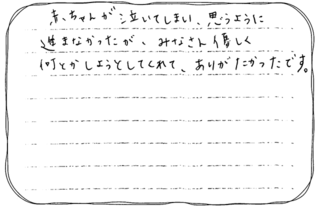 赤ちゃんが泣いてしまい、思うように
進まなかったが、みなさん優しく
何とかしようとしてくれて、ありがたかったです。